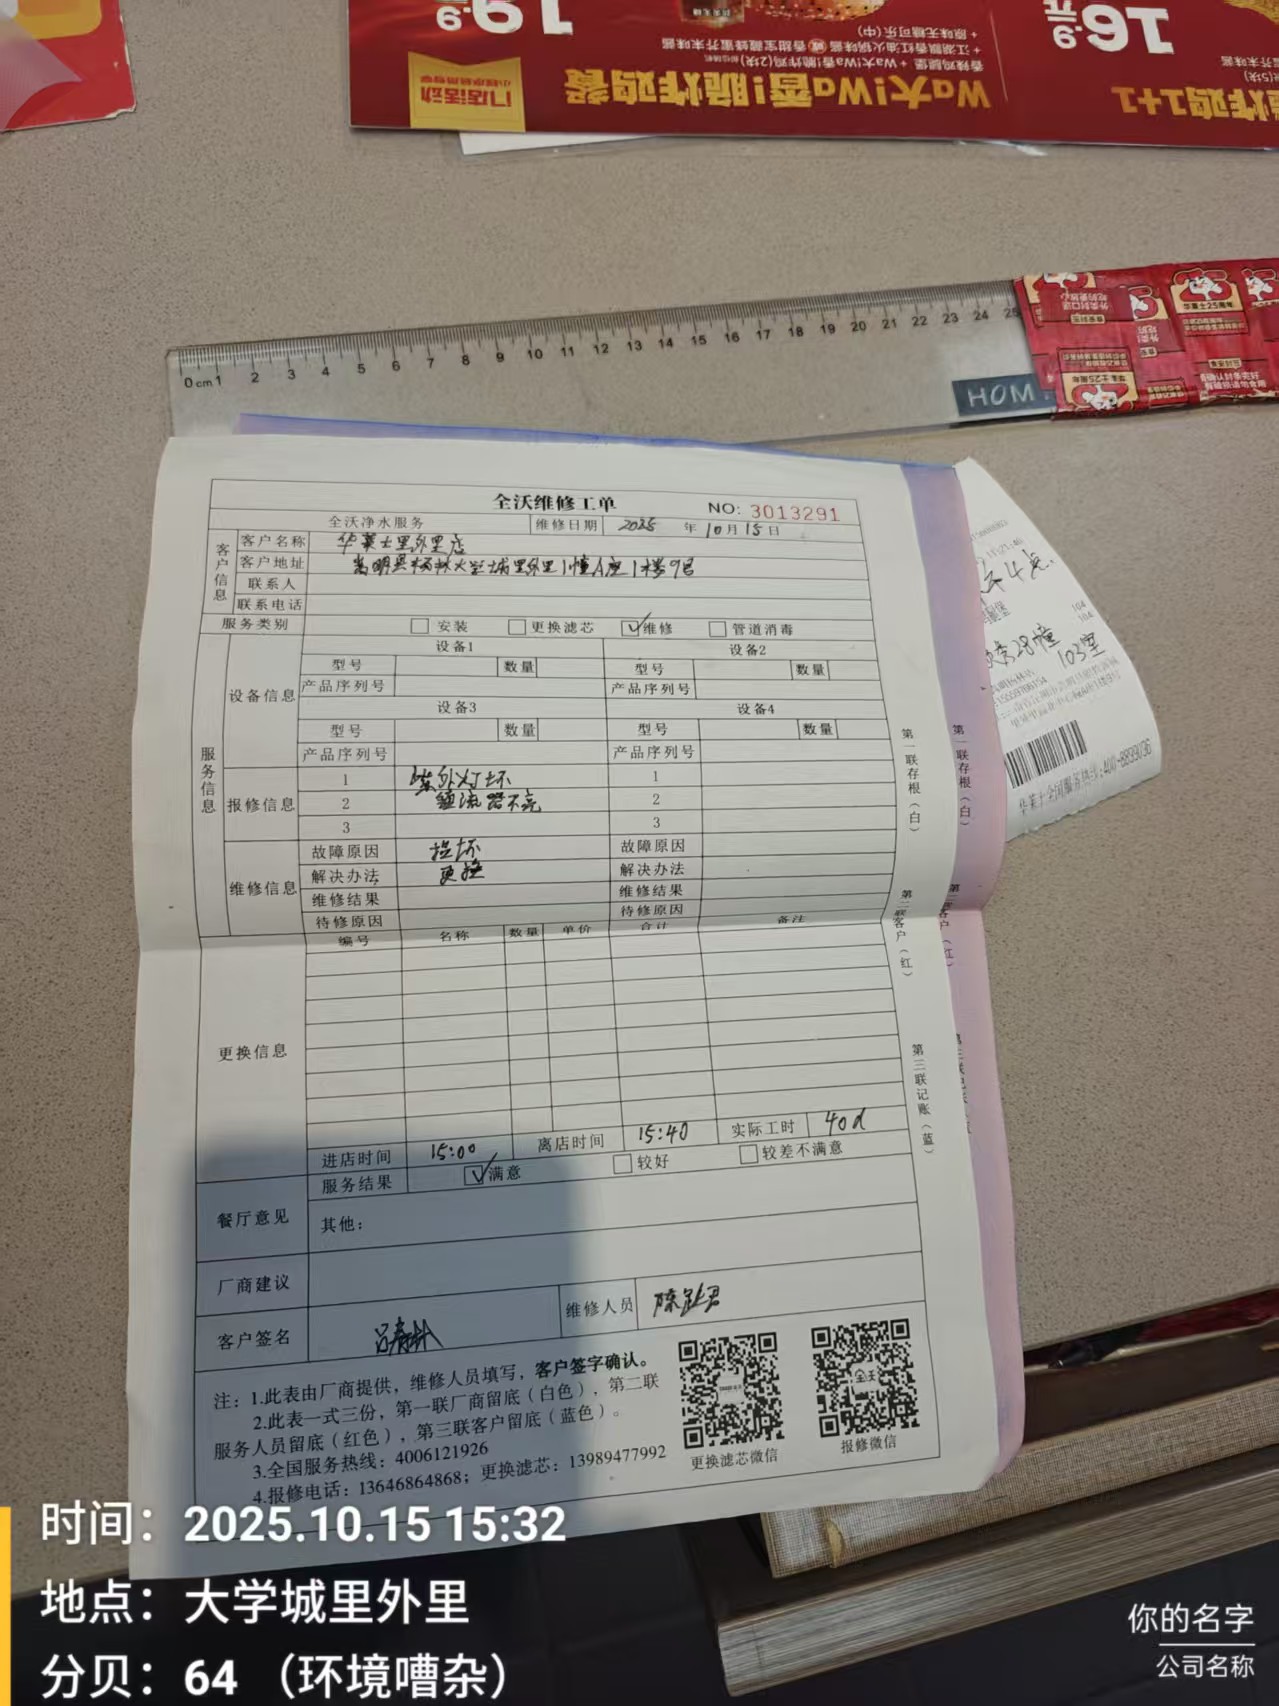 19.9
16.9元
香辣鸡腿堡 + Wa大!Wa香!脆炸鸡(2块)
+ 原味无糖可乐(中)
门店活动
Wa大!Wa香!脆炸鸡餐
炸鸡1+1
0cm 1 2 3 4 5 6 7 8 9 10 11 12 13 14 15 16 17 18 19 20 21 22 23 24 25
HOM
华莱士25周年
全沃维修工单 NO: 3013291
全沃净水服务 维修日期 2025 年 10 月 15 日
客户信息
客户名称 华莱士里外里店
客户地址 嵩明县杨林大学城里外里1幢A座1楼9号
联系人
联系电话
服务类别 安装 更换滤芯 ✓维修 管道消毒
服务信息
设备信息
设备1 设备2
型号 数量 型号 数量
产品序列号 产品序列号
设备3 设备4
型号 数量 型号 数量
产品序列号 产品序列号
报修信息
1 紫外灯坏 1
2 镇流器不亮 2
3 3
维修信息
故障原因 损坏 故障原因
解决办法 更换 解决办法
维修结果 维修结果
待修原因 待修原因
更换信息
编号 名称 数量 单价 合计 备注
进店时间 15:00 离店时间 15:40 实际工时 40d
餐厅意见
服务结果 ✓满意 较好 较差不满意
其他：
厂商建议
客户签名 维修人员
注：1.此表由厂商提供，维修人员填写，客户签字确认。
2.此表一式三份，第一联厂商留底（白色），第二联
服务人员留底（红色），第三联客户留底（蓝色）。
3.全国服务热线：4006121926
4.报修电话：13646864868；更换滤芯：13989477992
更换滤芯微信
全沃
报修微信
第一联存根（白）
第二联客户（红）
第三联记账（蓝）
第一联存根（白）
28幢
103室
华莱士全国服务热线:400-8899036
时间：2025.10.15 15:32
地点：大学城里外里
分贝：64 （环境嘈杂）
你的名字
公司名称